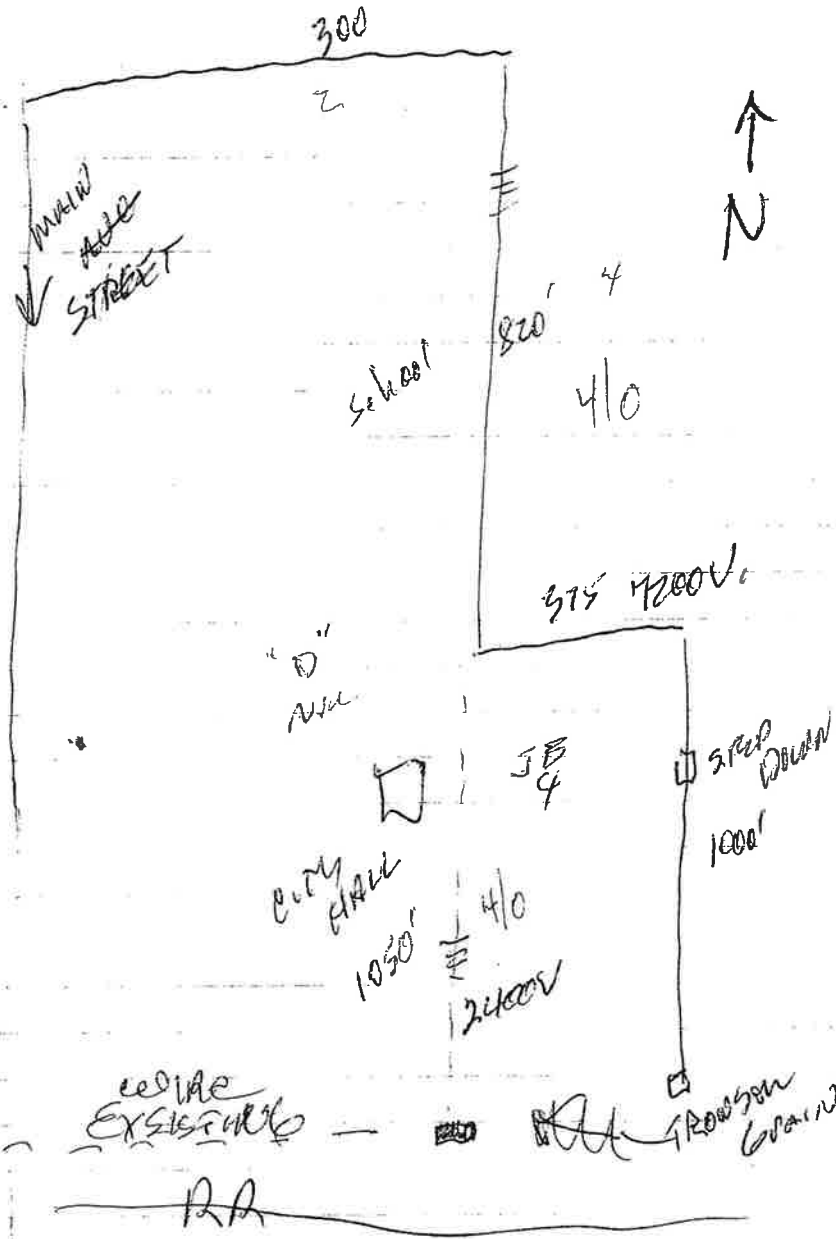 300
2
N
MAIN
AVE
STREET
820' 4
4/0
School
375 7200V.
"D"
AVE
JB
4
STEP
DOWN
1000'
CITY
HALL
1050'
4/0
2400V
WIRE
EXSISTING
GRAIN
RR